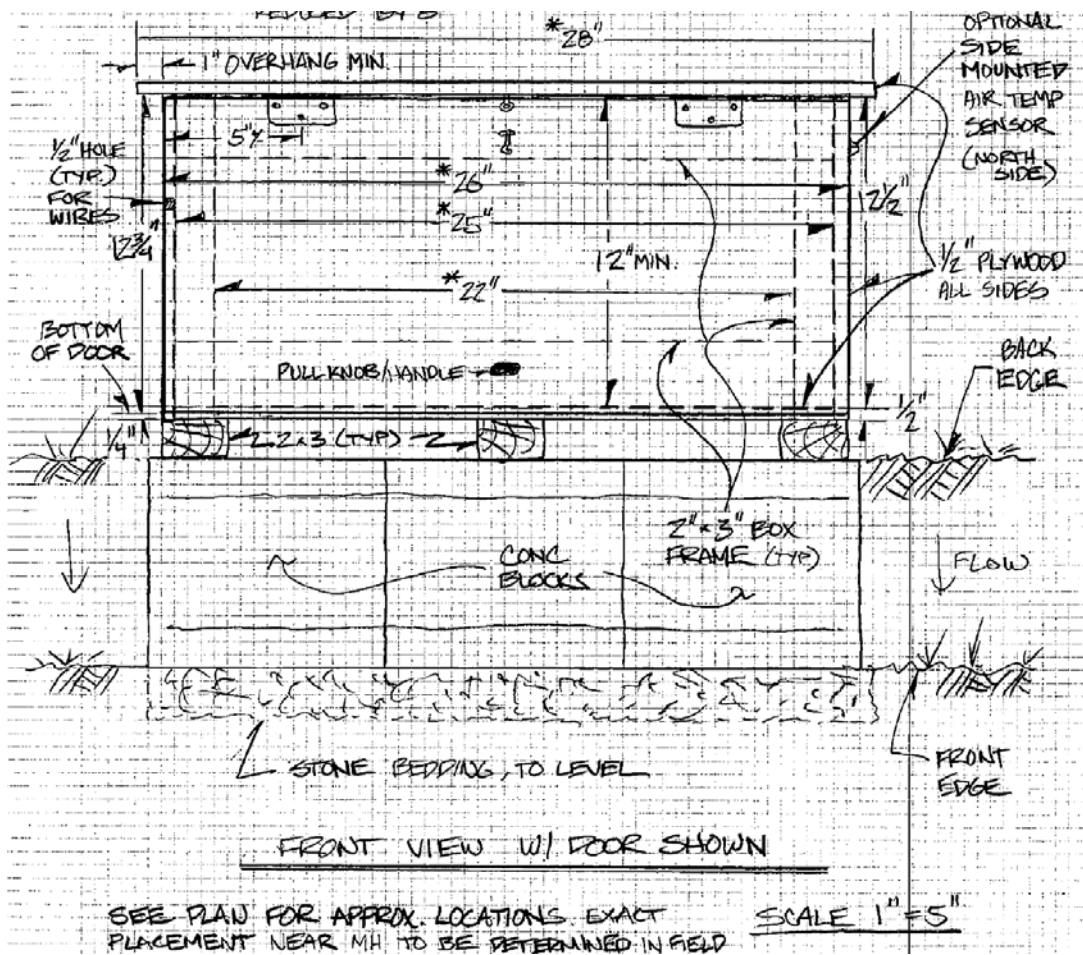 REDUCED BY 3"
*28"
1" OVERHANG MIN.
OPTIONAL
SIDE
MOUNTED
AIR TEMP
SENSOR
(NORTH
SIDE)
5"±
1/2" HOLE
(TYP.)
FOR
WIRES
*26"
*25"
12 3/4"
12 1/2"
12" MIN.
*22"
1/2" PLYWOOD
ALL SIDES
BOTTOM
OF DOOR
PULL KNOB/HANDLE
BACK
EDGE
1/2"
1/4"
2x3 (TYP)
2"x3" BOX
FRAME (TYP)
CONC
BLOCKS
FLOW
STONE BEDDING, TO LEVEL
FRONT
EDGE
FRONT VIEW W/ DOOR SHOWN
SEE PLAN FOR APPROX. LOCATIONS. EXACT
PLACEMENT NEAR MH TO BE DETERMINED IN FIELD
SCALE 1" = 5"